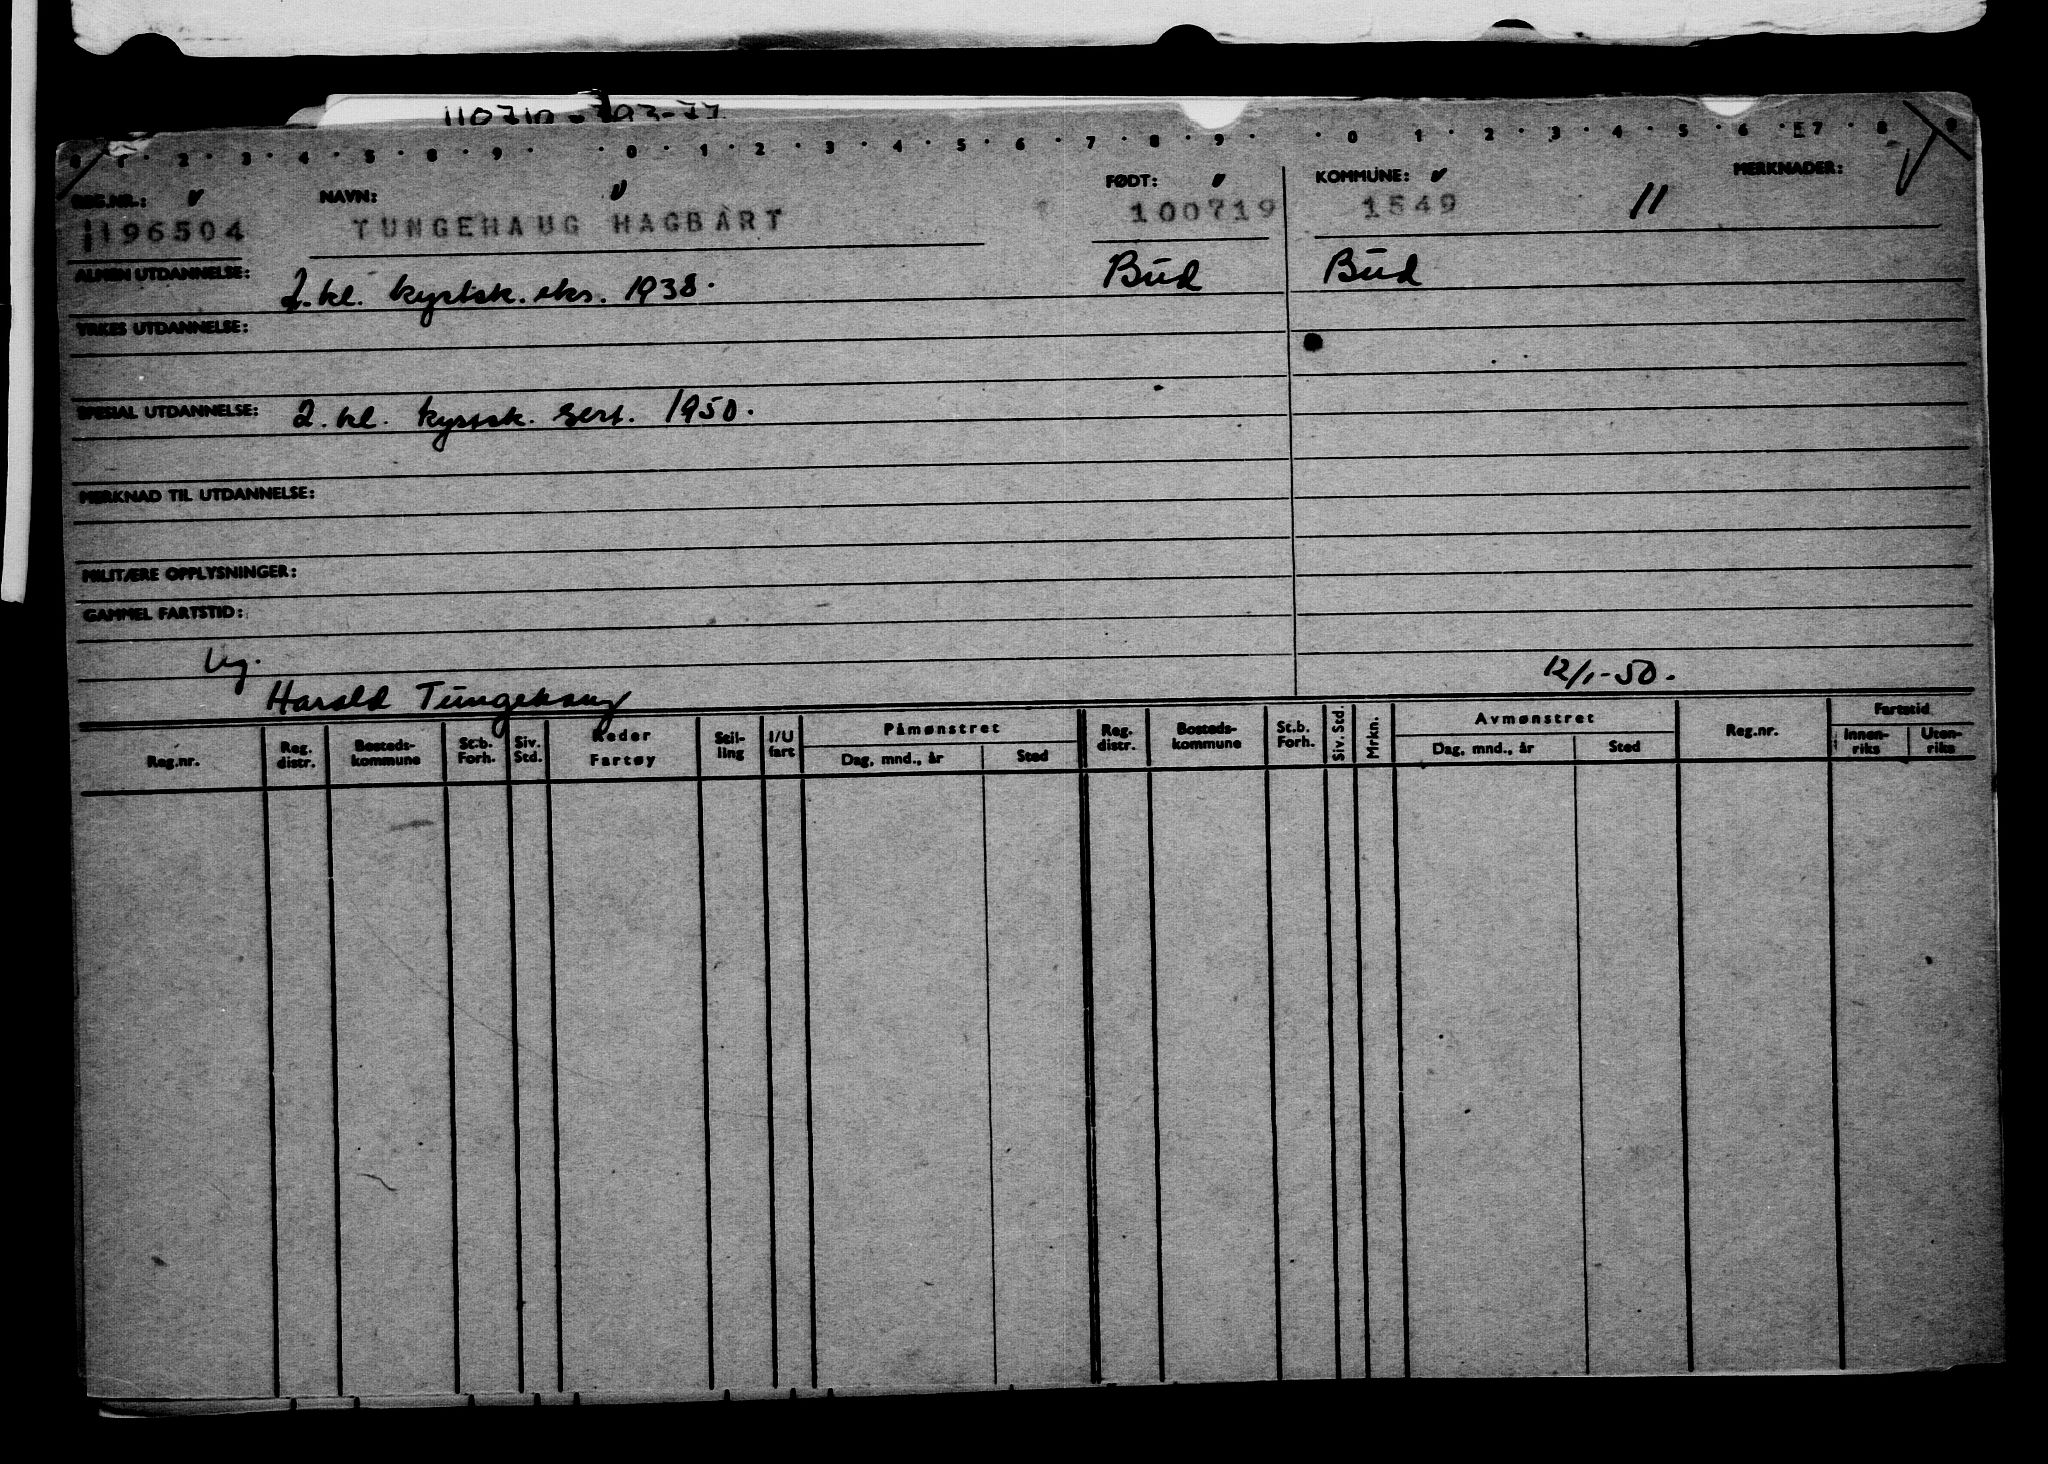 0 1 · 2 · 3 · 4 · 5 · 8 · 9 · · 0 · 1 · 2 · 3 · 4 · 5 · 6 · 7 · 8 · 9 · · 0 · 1 · 2 · 3 · 4 · 5 · 6 · 7 · 8 9
REG.NR.: NAVN: FØDT: KOMMUNE: MERKNADER:
196504 TUNGEHAUG HAGBART 100719 1549 11
ALMEN UTDANNELSE: 2. kl. kystsk. eks. 1938. Bud Bud
YRKES UTDANNELSE:
SPESIAL UTDANNELSE: 2. kl. kystsk. sert. 1950.
MERKNAD TIL UTDANNELSE:
MILITÆRE OPPLYSNINGER:
GAMMEL FARTSTID:
Ug.
Harald Tungehaug 12/1-50.
Reg.nr. Reg. distr. Bosteds-kommune St.b. Forh. Siv. Std. Reder Fartøy Stil-ling I/U fart Påmønstret Dag, mnd., år Sted Reg. distr. Bosteds-kommune St.b. Forh. Siv. Std. Mrkn. Avmønstret Dag, mnd., år Sted Reg.nr. Fartstid Innen-riks Uten-riks